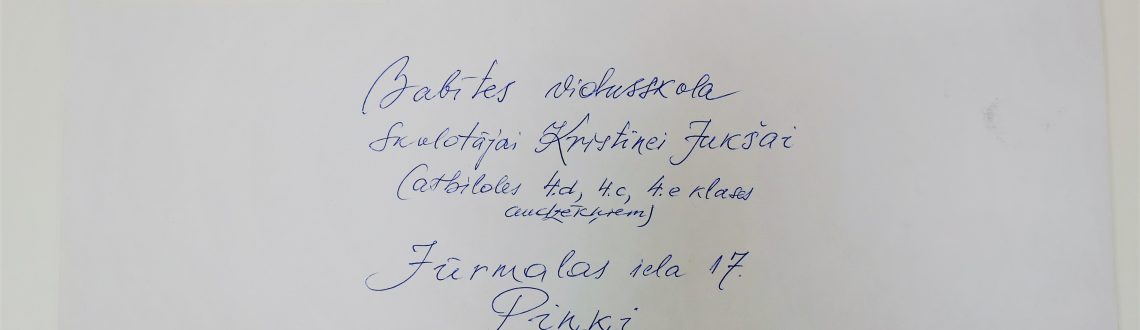 Babītes vidusskola
Skolotājai Kristīnei Jukšai
(atbildes 4.d, 4.c, 4.e klases
audzēkņiem)
Jūrmalas iela 17.
Piņķi